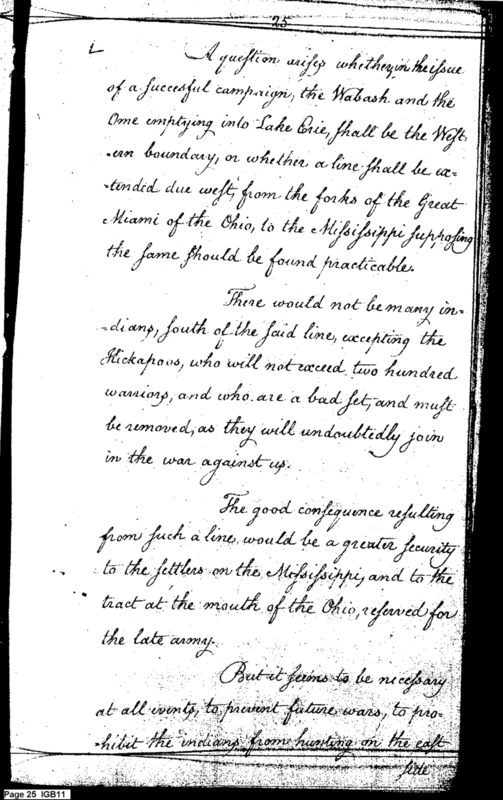 25
A question arises whether, in the issue
of a succesful campaign, the Wabash and the
Ome emptying into Lake Erie, shall be the West-
-ern boundary, or whether a line shall be ex-
-tended due west, from the forks of the Great
Miami of the Ohio, to the Mississippi supposing
the same should be found practicable.
There would not be many in-
-dians, south of the said line, excepting the
Kickapoos, who will not exceed two hundred
warriors, and who are a bad set, and must
be removed, as they will undoubtedly join
in the war against us.
The good consequence resulting
from such a line, would be a greater security
to the settlers on the Mississippi, and to the
tract at the mouth of the Ohio, reserved for
the late army.
But it seems to be necessary
at all events, to prevent future wars, to pro-
-hibit the indians from hunting on the east
side
Page 25 IGB11